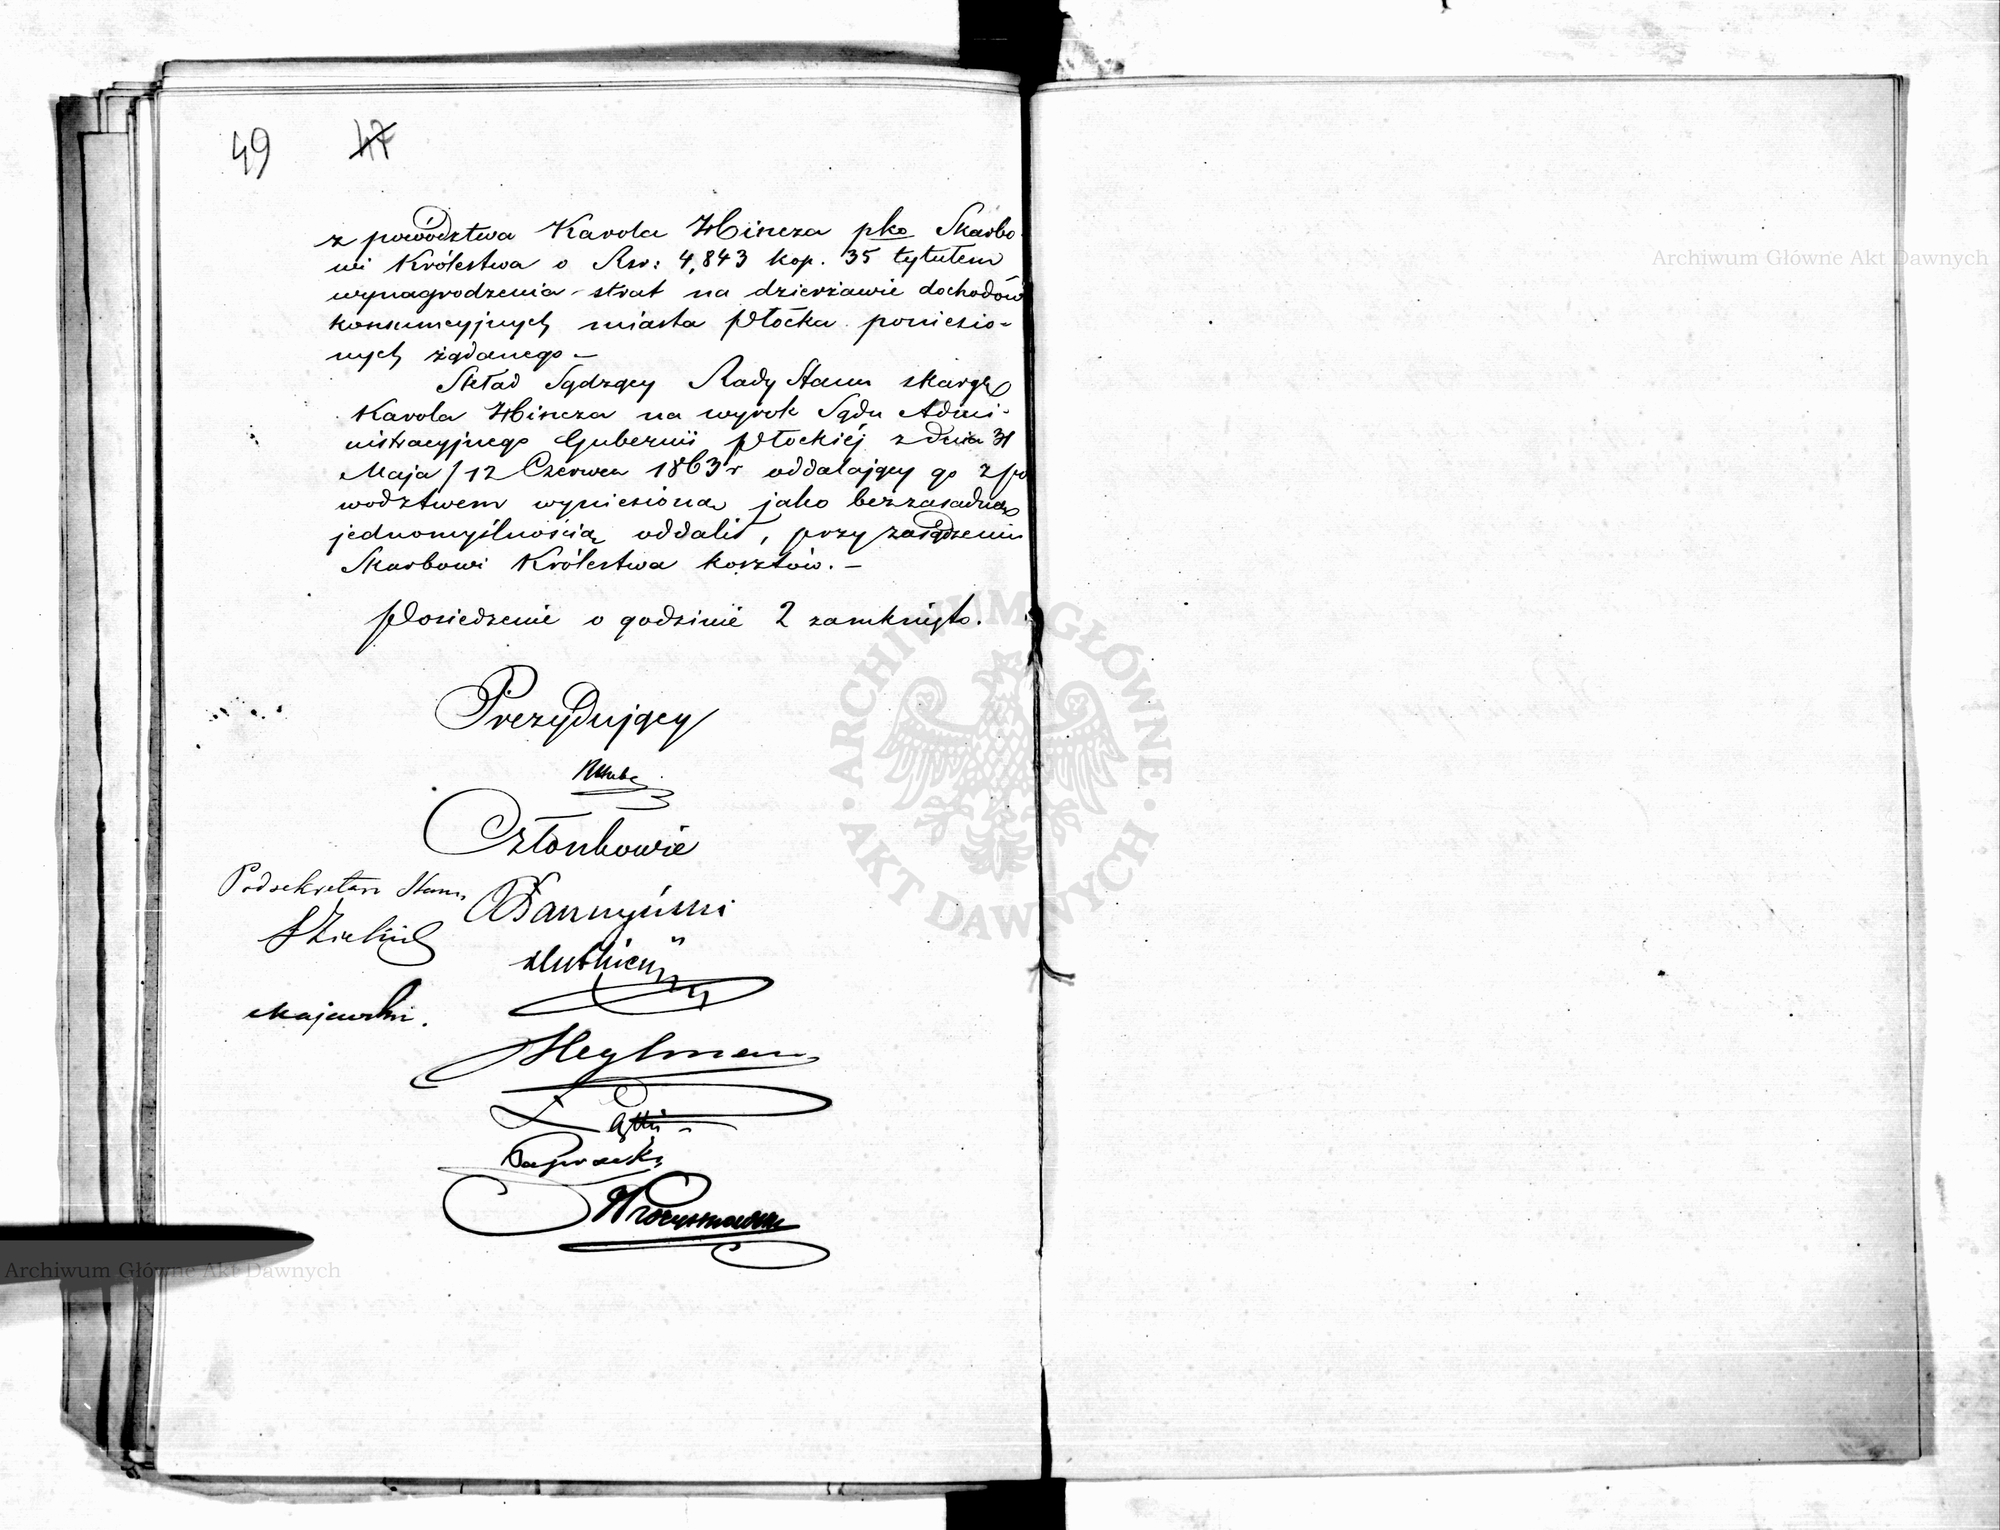 49 47
z powództwa Karola Hincza pko Skarbo
wi Królestwa o Rsr: 4,843 kop. 35 tytułem
wynagrodzenia strat na dzierżawie dochodów
konsumcyjnych miasta Płocka poniesio-
nych żądanego –
Skład Sądzący Rady Stanu skargę
Karola Hincza na wyrok Sądu Admi-
nistracyjnego Gubernii Płockiéj z dnia 31
Maja / 12 Czerwca 1863 r oddalający go z po
wodztwem wyniesioną jako bezzasadną
jednomyślnością oddalił, przy zasądzeniu
Skarbowi Królestwa kosztów. –
Posiedzenie o godzinie 2 zamknięto.
Prezydujący
Członkowie
Podsekretarz Stanu
Majewski.
Heylman
Archiwum Główne Akt Dawnych
Archiwum Główne Akt Dawnych
ARCHIWUM GŁÓWNE
AKT DAWNYCH